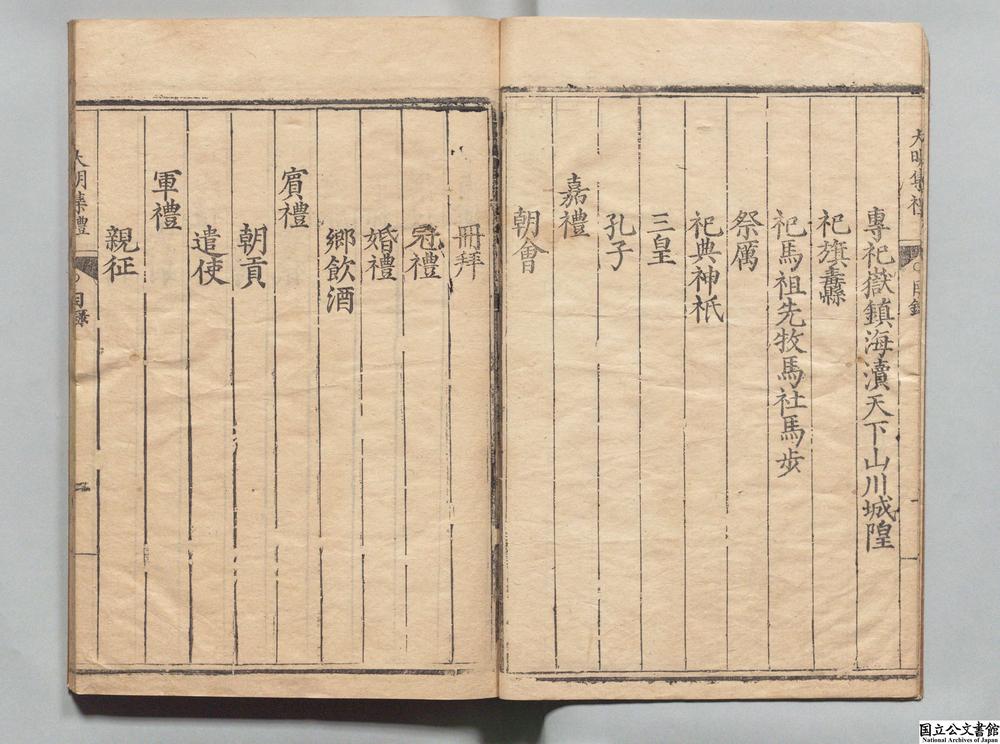 大明集禮
目錄
專祀嶽鎮海瀆天下山川城隍
祀旗纛
祀馬祖先牧馬社馬步
祭厲
祀典神祇
三皇
孔子
嘉禮
朝會
冊拜
冠禮
婚禮
鄉飲酒
賓禮
朝貢
遣使
軍禮
親征
大明集禮
目錄
二
国立公文書館
National Archives of Japan